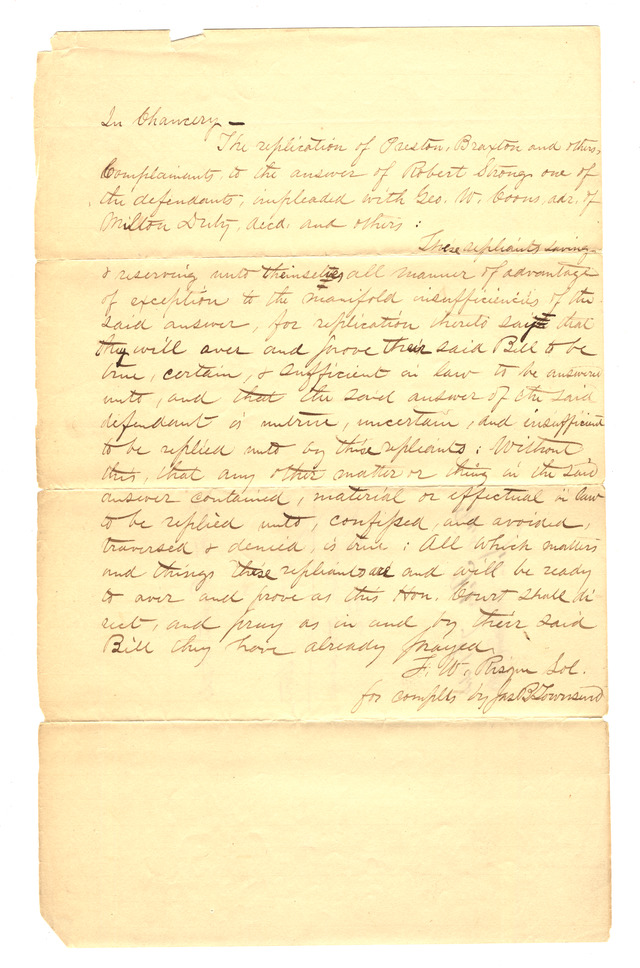 In Chancery —
The replication of Preston, Braxton and others,
Complainants, to the answer of Robert Strong one of
the defendants, impleaded with Geo. W. Coons, adr. of
Milton Duty, decd. and others :
These repliants saving
& reserving unto themselves all manner of advantage
of exception to the manifold insufficiencies of the
said answer, for replication thereto say that
they will aver and prove their said Bill to be
true, certain, & sufficient in law to be answered
unto, and that the said answer of the said
defendant is untrue, uncertain, and insufficient
to be replied unto by these repliants : Without
this, that any other matter or thing in the said
answer contained, material or effectual in law
to be replied unto, confessed, and avoided,
traversed & denied, is true : All which matters
and things these repliants are and will be ready
to aver and prove as this Hon. Court shall di-
rect, and pray as in and by their said
Bill they have already prayed
F. W. Risque Sol.
for complts by Jas B. Townsend